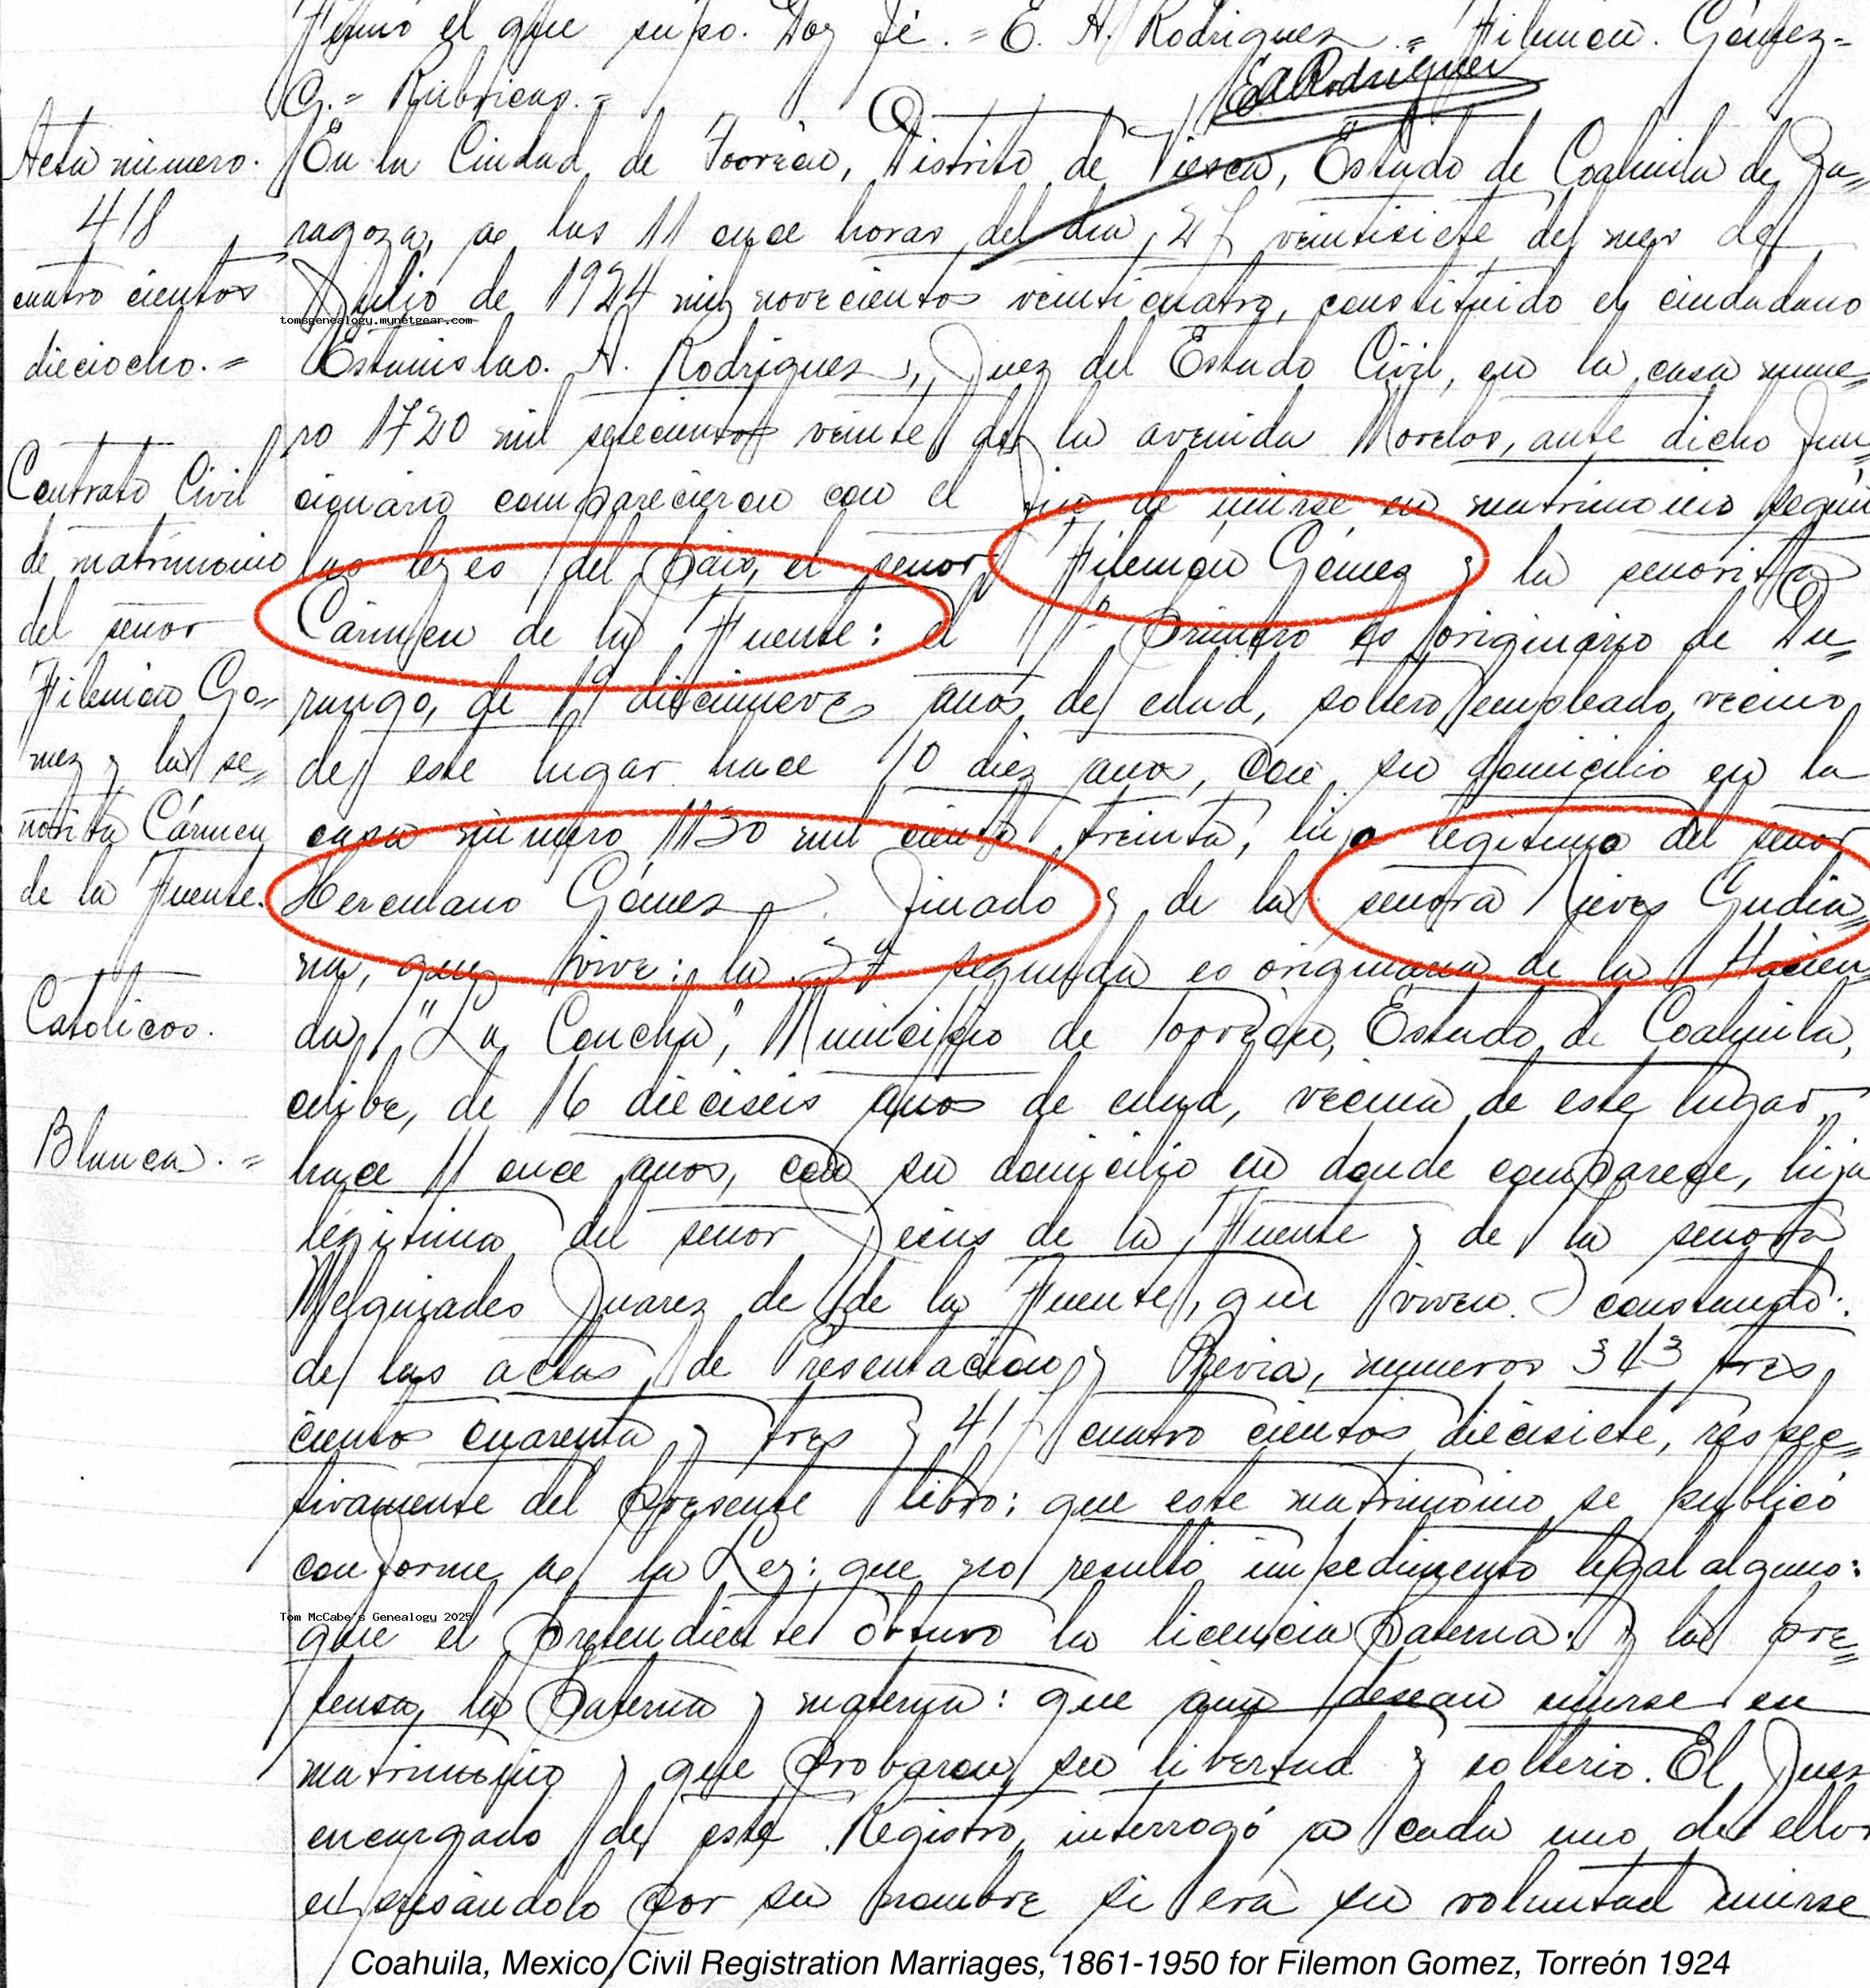 firmó el que supo. Doy fé. = E. A. Rodriguez. = Filemón. Gómez =
G. = Rúbricas. =
EARodriguez
Acta número.
418
cuatro cientos
dieciocho. =
Contrato Civil
de matrimonio
del señor
Filemón Go=
mez y la se=
ñorita Cármen
de la Fuente.
Católicos.
Blanca. =
En la Ciudad de Torreón, Distrito de Viesca, Estado de Coahuila de Za=
ragoza, a las 11 once horas del dia 27 veintisiete del mes de
Julio de 1924 mil novecientos veinticuatro, constituido el ciudadano
tomsgenealogy.mynetgear.com
Estanislao. A. Rodriguez, Juez del Estado Civil, en la casa núme=
ro 1720 mil setecientos veinte de la avenida Morelos, ante dicho fun=
cionario comparecieron con el fin de unirse en matrimonio según
las leyes del País, el señor Filemón Gómez y la señorita
Cármen de la Fuente: el 1º primero es originario de Du=
rango, de 19 diecinueve años de edad, soltero, empleado, vecino
de este lugar hace 10 diez años, con su domicilio en la
casa número 1130 mil ciento treinta, hijo legitimo del señor
Herculano Gómez, finado y de la señora Nieves Gudia=
na, que vive: la 2ª segunda es originaria de la Hacien=
da "La Concha", Municipio de Torreón, Estado de Coahuila,
célibe, de 16 dieciseis años de edad, vecina de este lugar,
hace 11 once años, con su domicilio en donde comparece, hija
legitima del señor Jesús de la Fuente y de la señora
Melquiades Juarez de de la Fuente, que viven. constando:
de las actas de Presentación y Previa, números 343 tres
cientos cuarenta y tres y 417 cuatro cientos diecisiete, respec=
tivamente del presente libro: que este matrimonio se publicó
conforme a la Ley: que no resultó impedimento legal alguno:
Tom McCabe's Genealogy 2025
que el pretendiente obtuvo la licencia paterna: y la pre=
tensa, la paterna y materna: que aún desean unirse en
matrimonio y que probaron su libertad y solterio. El Juez
encargado de este Registro interrogó a cada uno de ellos
expresándolo por su nombre si era su voluntad unirse
Coahuila, Mexico, Civil Registration Marriages, 1861-1950 for Filemon Gomez, Torreón 1924